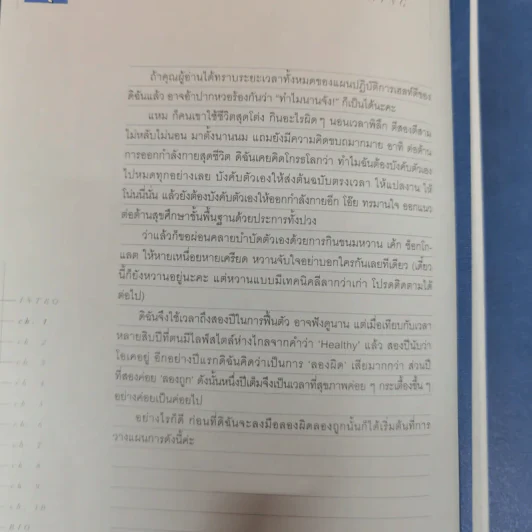 ถ้าคุณผู้อ่านได้ทราบระยะเวลาทั้งหมดของแผนปฏิบัติการเฮลท์ตี้ของ
ดิฉันแล้ว อาจอ้าปากหวอร้องกันว่า “ทำไมนานจัง!” ก็เป็นได้นะคะ
แหม ก็คนเขาใช้ชีวิตสุดโต่ง กินอะไรผิด ๆ นอนเวลาพิลึก ตีสองตีสาม
ไม่หลับไม่นอน มาตั้งนานนม แถมยังมีความคิดขบถมากมาย อาทิ ต่อต้าน
การออกกำลังกายสุดชีวิต ดิฉันเคยคิดโกรธโลกว่า ทำไมฉันต้องบังคับตัวเอง
ไปหมดทุกอย่างเลย บังคับตัวเองให้ส่งต้นฉบับตรงเวลา ให้แปลงาน ให้
โน่นนี่นั่น แล้วยังต้องบังคับตัวเองให้ออกกำลังกายอีก โอ๊ย ทรมานใจ ออกแนว
ต่อต้านสุขศึกษาขั้นพื้นฐานด้วยประการทั้งปวง
ว่าแล้วก็ขอผ่อนคลายบำบัดตัวเองด้วยการกินขนมหวาน เค้ก ช็อกโก-
แลต ให้หายเหนื่อยหายเครียด หวานจับใจอย่าบอกใครกันเลยทีเดียว (เดี๋ยว
นี้ก็ยังหวานอยู่นะคะ แต่หวานแบบมีเทคนิคลีลากว่าเก่า โปรดติดตามได้
ต่อไป)
ดิฉันจึงใช้เวลาถึงสองปีในการฟื้นตัว อาจฟังดูนาน แต่เมื่อเทียบกับเวลา
หลายสิบปีที่ตนมีไลฟ์สไตล์ห่างไกลจากคำว่า ‘Healthy’ แล้ว สองปีนับว่า
โอเคอยู่ อีกอย่างปีแรกดิฉันคิดว่าเป็นการ ‘ลองผิด’ เสียมากกว่า ส่วนปี
ที่สองค่อย ‘ลองถูก’ ดังนั้นหนึ่งปีเต็มจึงเป็นเวลาที่สุขภาพค่อย ๆ กระเตื้องขึ้น ๆ
อย่างค่อยเป็นค่อยไป
อย่างไรก็ดี ก่อนที่ดิฉันจะลงมือลองผิดลองถูกนั้นก็ได้เริ่มต้นที่การ
วางแผนการดังนี้ค่ะ